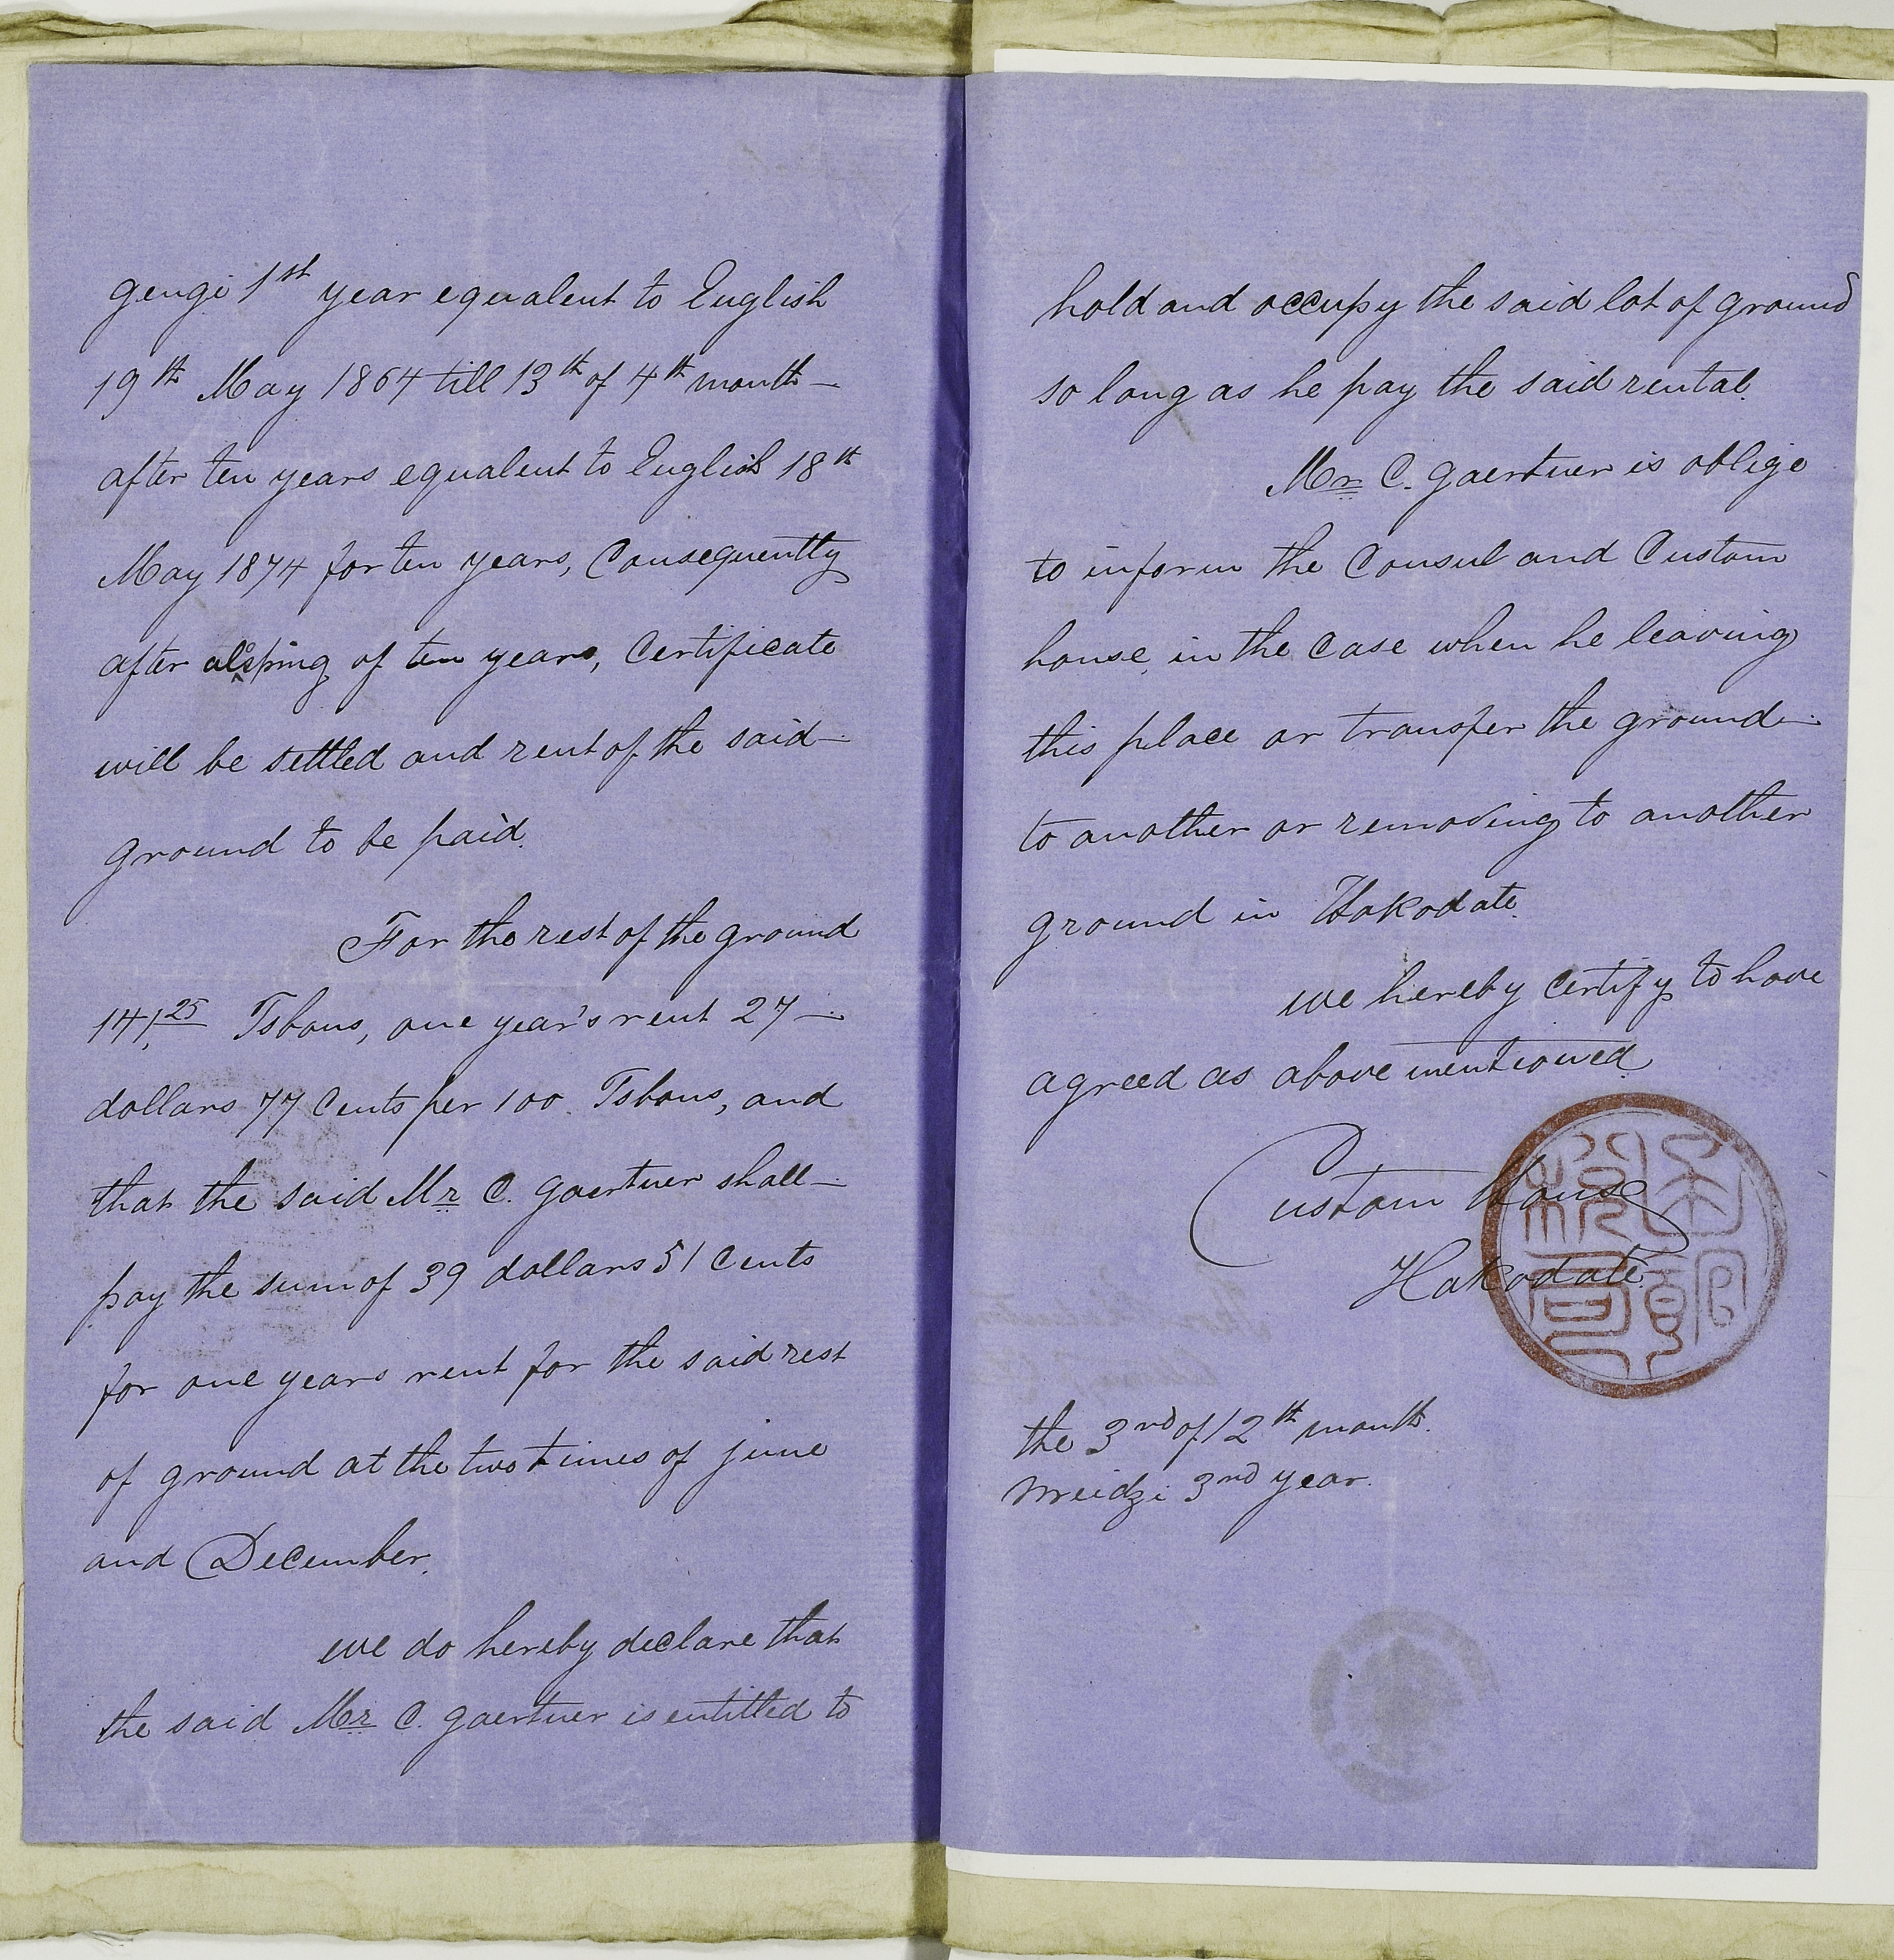 gengi 1st year equalent to English
19th May 1864 till 13th of 4th month
after ten years equalent to English 18th
May 1874 for ten years, Consequently
after of ten years, Certificate
will be settled and rent of the said
ground to be paid.
For the rest of the ground
141,25 Tsbous, one year's rent 27
dollars 77 Cents per 100 Tsbous, and
that the said Mr C. gaertner shall
pay the sum of 39 dollars 51 Cents
for one years rent for the said rest
of ground at the two times of june
and December.
we do hereby declare that
the said Mr C. gaertner is entitled to
hold and occupy the said lot of ground
so long as he pay the said rental.
Mr C. gaertner is oblige
to inform the Consul and Custom
house, in the Case when he leaving
this place or transfer the ground
to another or removing to another
ground in Hakodate.
we hereby Certify to have
agreed as above mentioned.
Custom House
Hakodate.
the 3rd of 12th month.
meidzi 3rd year.